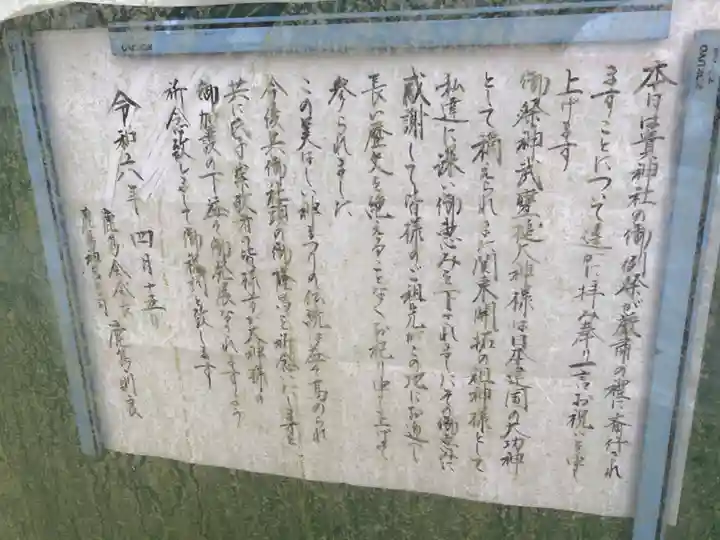 本日は貴神社の御例祭が厳粛の裡に斎行され
ますことについて遥かに拝み奉り一言お祝いを申し
上げます
御祭神武甕槌大神様は日本建国の大功神
として称えられまた関東開拓の祖神様として
私達に深い御恵みを下されましたその御恵みに
感謝して皆様のご祖先がこの地にお遷し
長い歴史を絶えることなくお祀り申し上げて
参られました
この美はしい神まつりの伝統を益々高められ
今後共御社頭の御隆昌を祈念いたしますと
共に氏子崇敬者の皆様方が大神様の
御加護の下益々御発展なされますよう
祈念致しまして御祝詞と致します
令和六年 四月十五日
鹿島 宮司 鹿島則良